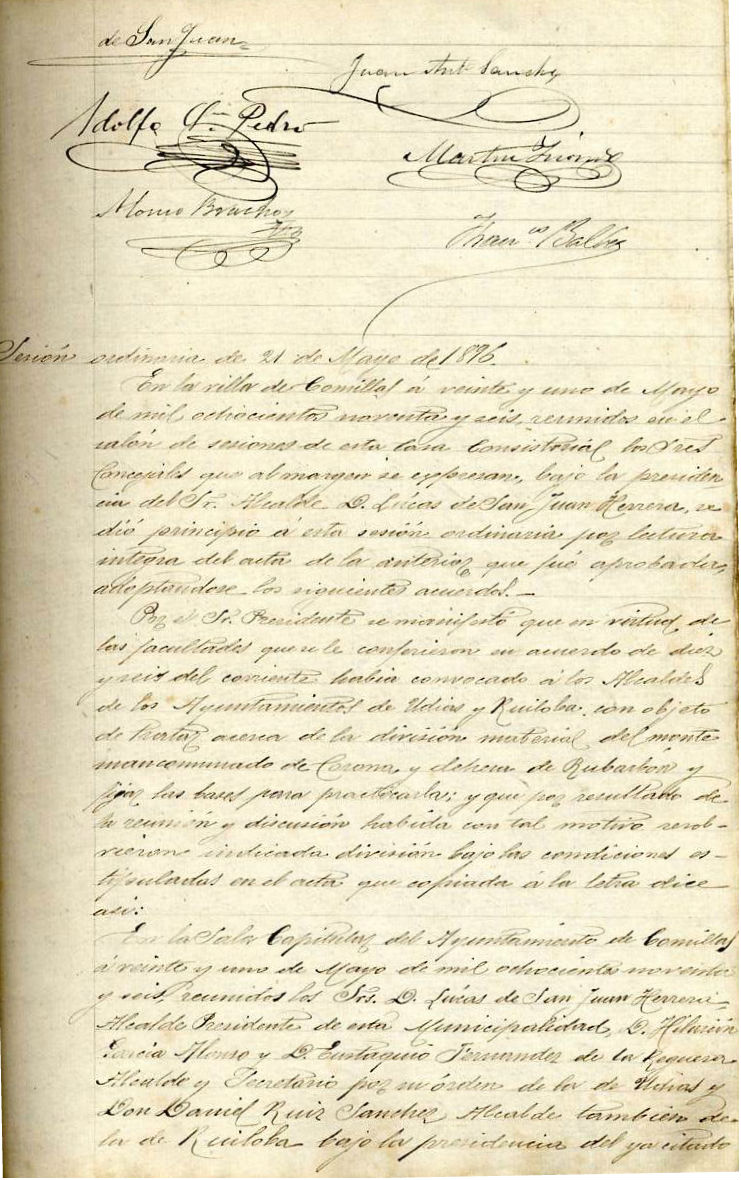 de San Juan
Juan Ant. Sanchez
Adolfo Sn. Pedro
Martin
Alonso
Franco. Balbas
Sesión ordinaria de 21 de Mayo de 1896.
En la villa de Comillas á veinte y uno de Mayo
de mil ochocientos noventa y seis, reunidos en el
salón de sesiones de esta Casa Consistorial los Sres
Concejales que al margen se expresan, bajo la presiden
cia del Sr. Alcalde D. Lúcas de San Juan Herrera, se
dió principio á esta sesión ordinaria por lectura
integra del acta de la anterior que fué aprobada,
adoptandose los siguientes acuerdos.—
Por el Sr. Presidente se manifestó que en virtud de
las facultades que se le confirieron en acuerdo de diez
y seis del corriente habia convocado á los Alcaldes
de los Ayuntamientos de Udias y Ruiloba con objeto
de tratar acerca de la división material del monte
mancomunado de Corona y dehesa de Rubarbon y
fijar las bases para practicarla; y que por resultado de
la reunión y discusión habida con tal motivo resol-
vieron indicada división bajo las condiciones es-
tipuladas en el acta que copiada á la letra dice
asi:
En la Sala Capitular del Ayuntamiento de Comillas
á veinte y uno de Mayo de mil ochocientos noventa
y seis, reunidos los Srs. D. Lúcas de San Juan Herrera
Alcalde Presidente de esta Municipalidad, D. Hilarión
García Alonso y D. Eustaquio Fernandez de la Reguera
Alcalde y Secretario por su órden de la de Udias y
Don Daniel Ruiz Sanchez Alcalde tambien de
la de Ruiloba bajo la presidencia del ya citado